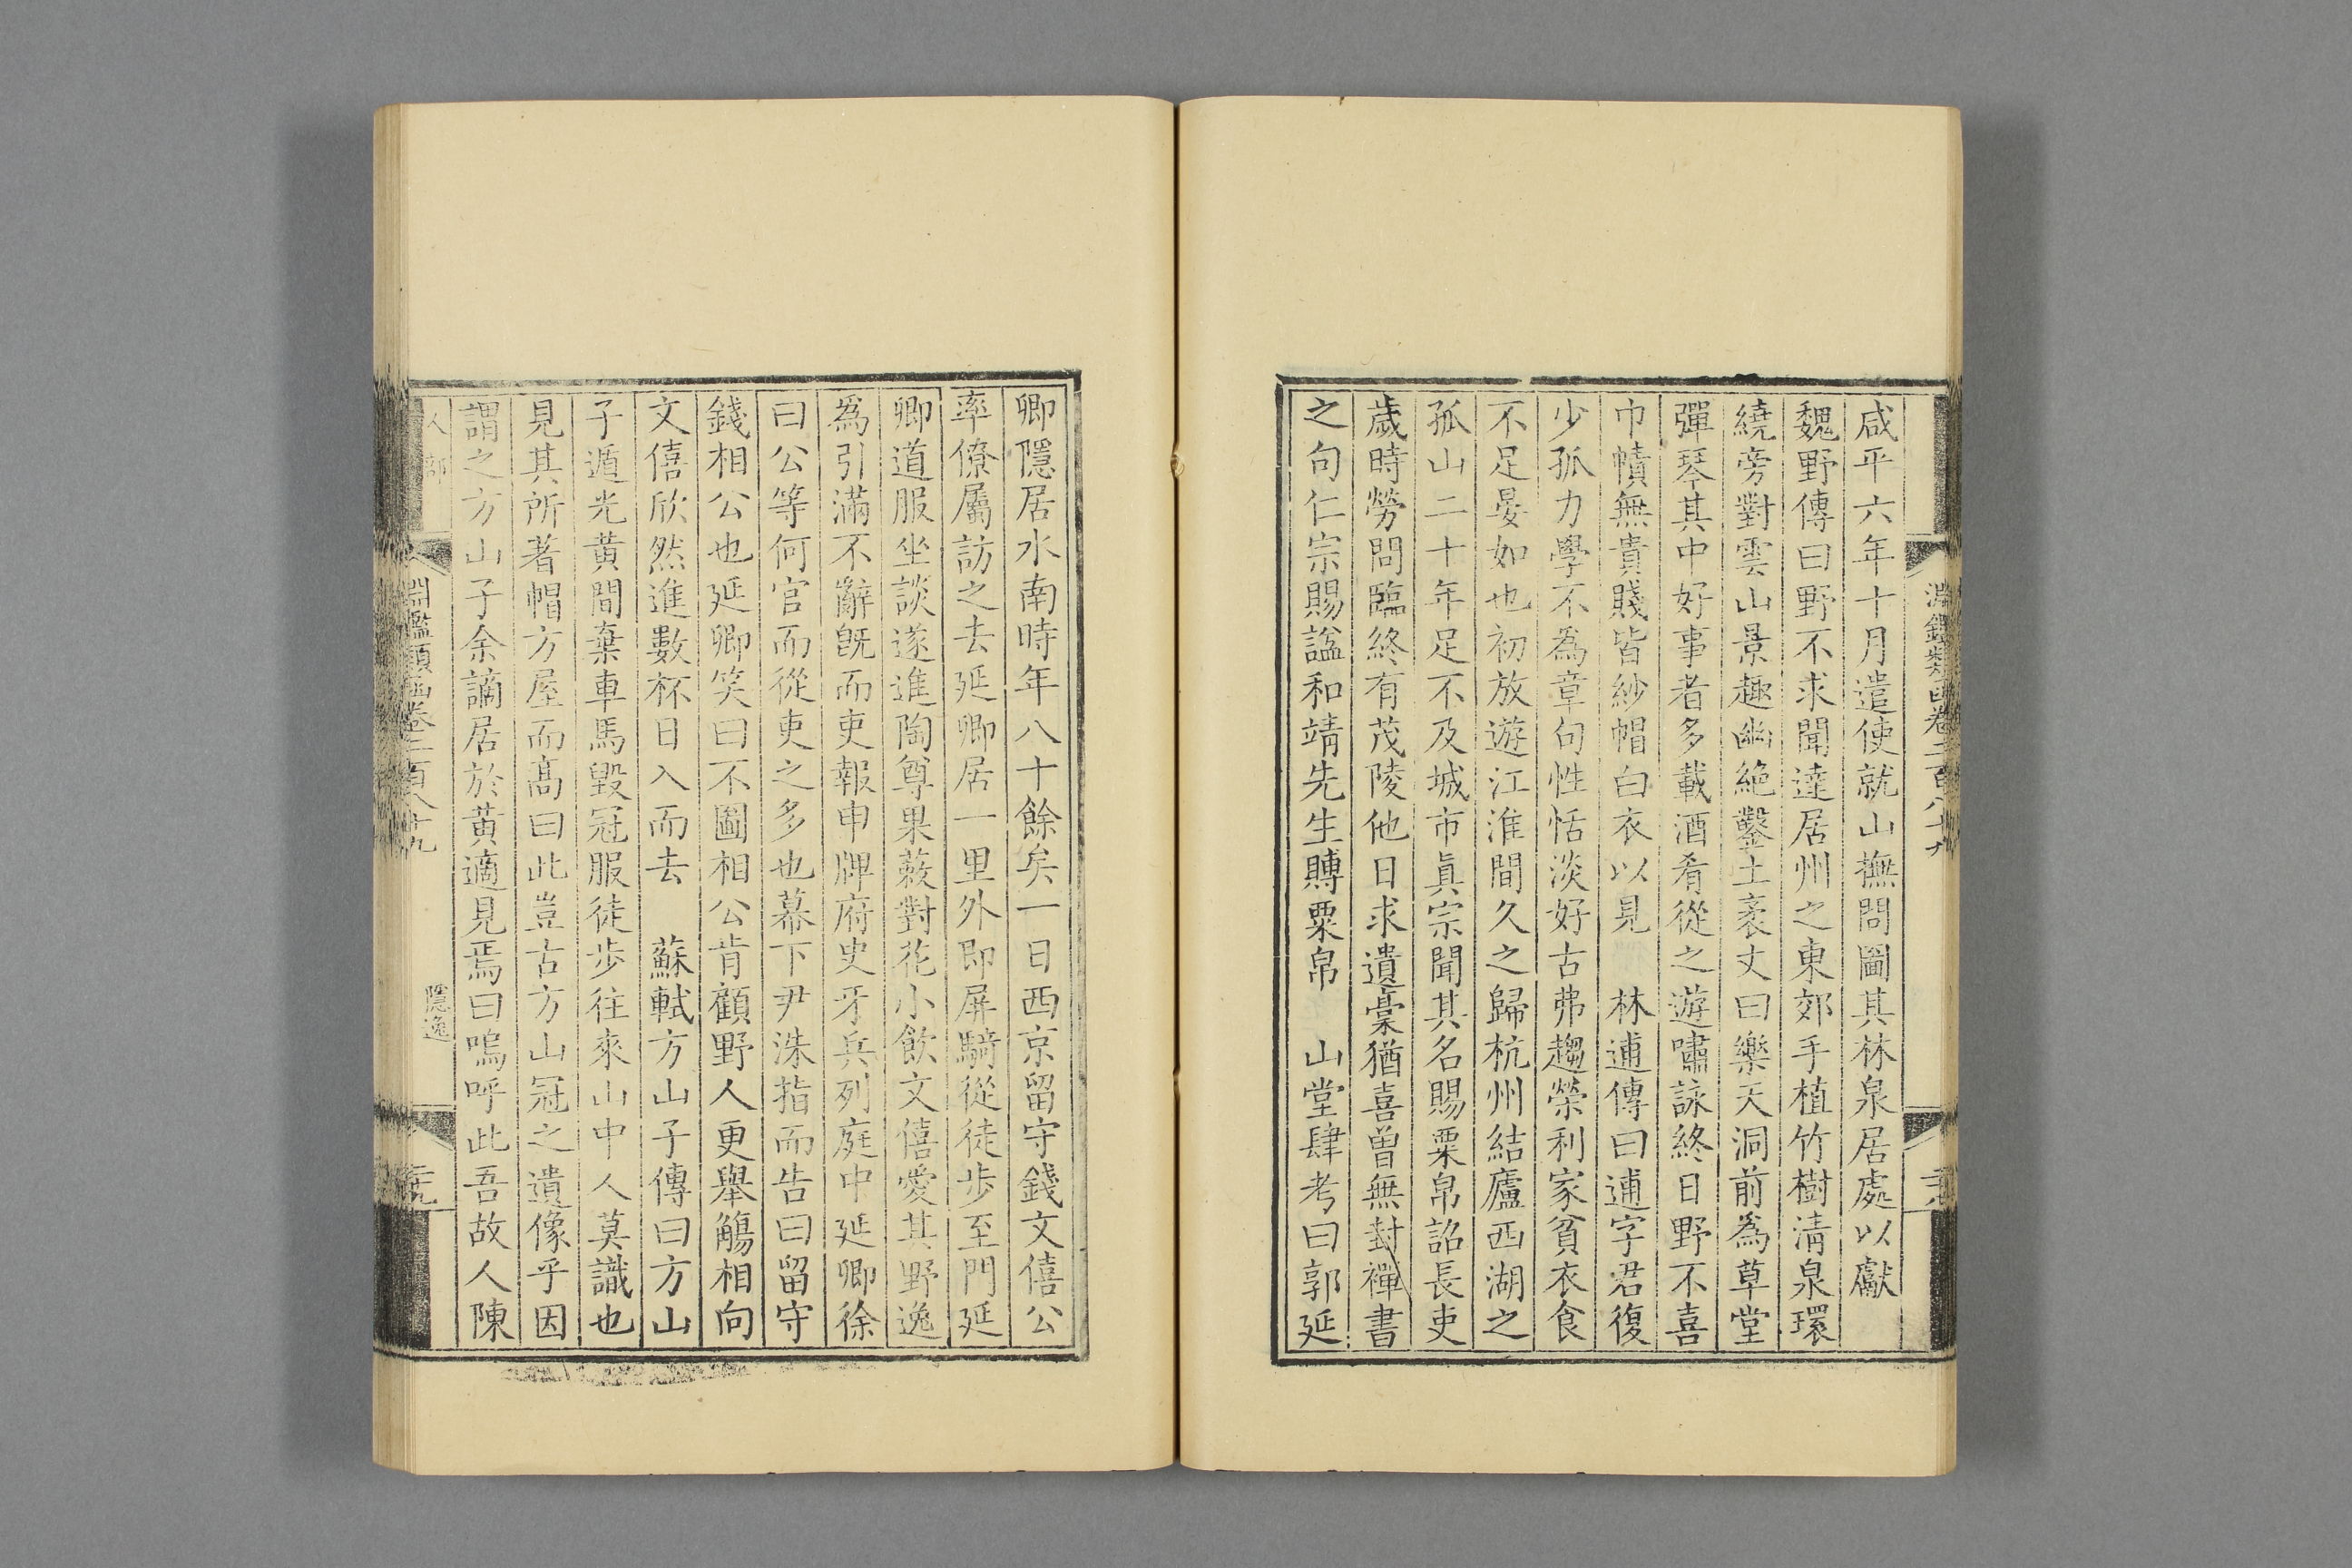 咸平六年十月遣使就山撫問圖其林泉居處以獻
魏野傳曰野不求聞達居州之東郊手植竹樹清泉環
繞旁對雲山景趣幽絶鑿土袤丈曰樂天洞前為草堂
彈琴其中好事者多載酒肴從之遊嘯詠終日野不喜
巾幘無貴賤皆紗帽白衣以見　林逋傳曰逋字君復
少孤力學不為章句性恬淡好古弗趨榮利家貧衣食
不足晏如也初放遊江淮間久之歸杭州結廬西湖之
孤山二十年足不及城市眞宗聞其名賜粟帛詔長吏
歲時勞問臨終有茂陵他日求遺稾猶喜曽無封禪書
之句仁宗賜諡和靖先生賻粟帛　山堂肆考曰郭延
卿隱居水南時年八十餘矣一日西京留守錢文僖公
率僚屬訪之去延卿居一里外即屏騎從徒步至門延
卿道服坐談遂進陶尊果蔌對花小飲文僖愛其野逸
爲引滿不辭旣而吏報申牌府史牙兵列庭中延卿徐
曰公等何官而從吏之多也幕下尹洙指而告曰留守
錢相公也延卿笑曰不圖相公肯顧野人更舉觴相向
文僖欣然進數杯日入而去　蘇軾方山子傳曰方山
子遁光黄間棄車馬毀冠服徒步往來山中人莫識也
見其所著帽方屋而高曰此豈古方山冠之遺像乎因
謂之方山子余謫居於黄適見焉曰嗚呼此吾故人陳
人部
淵鑑類函卷二百八十九
隱逸